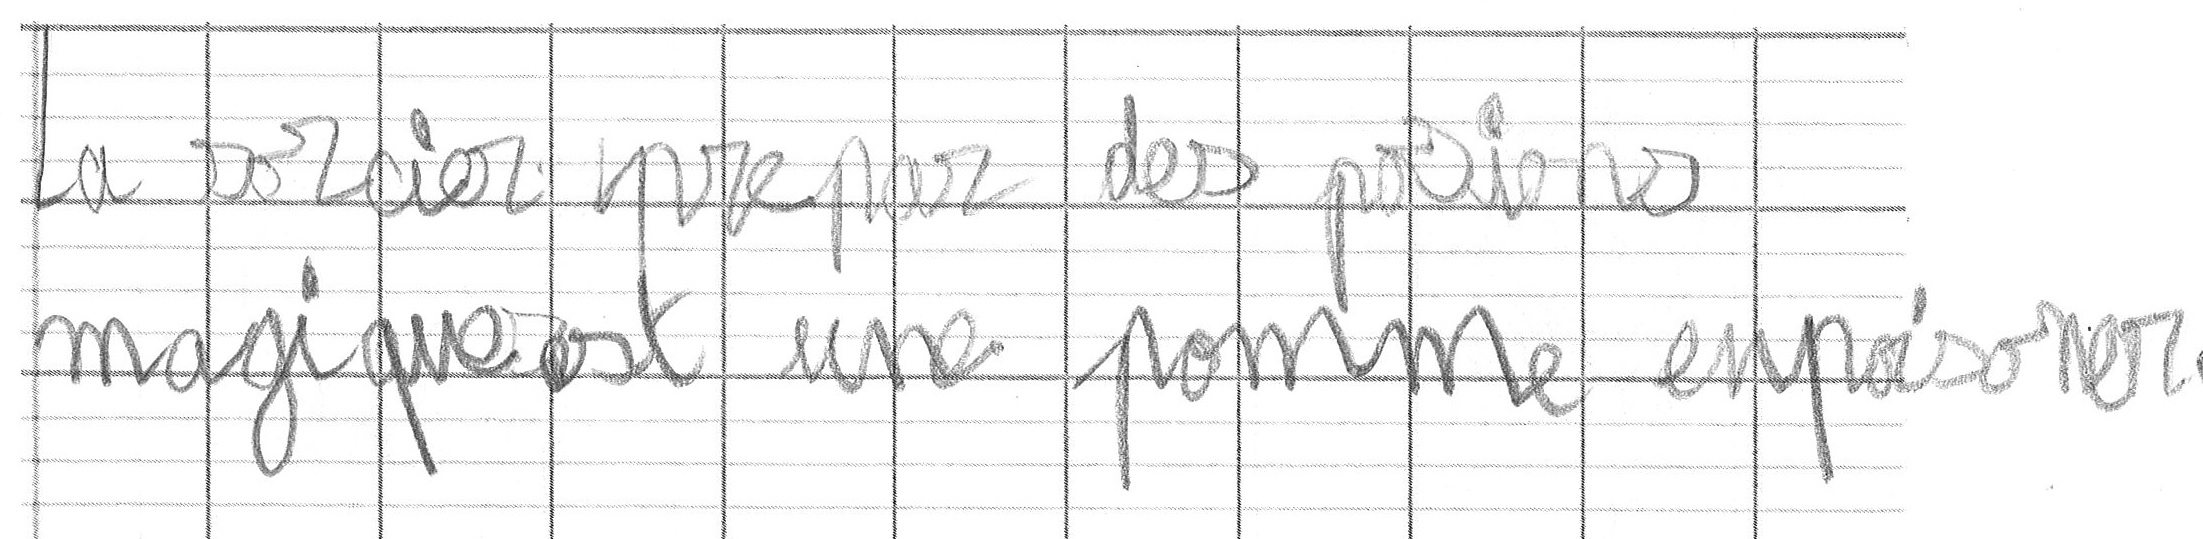 La sorcier prepar des posions
magique est une pomme enpoisoner.